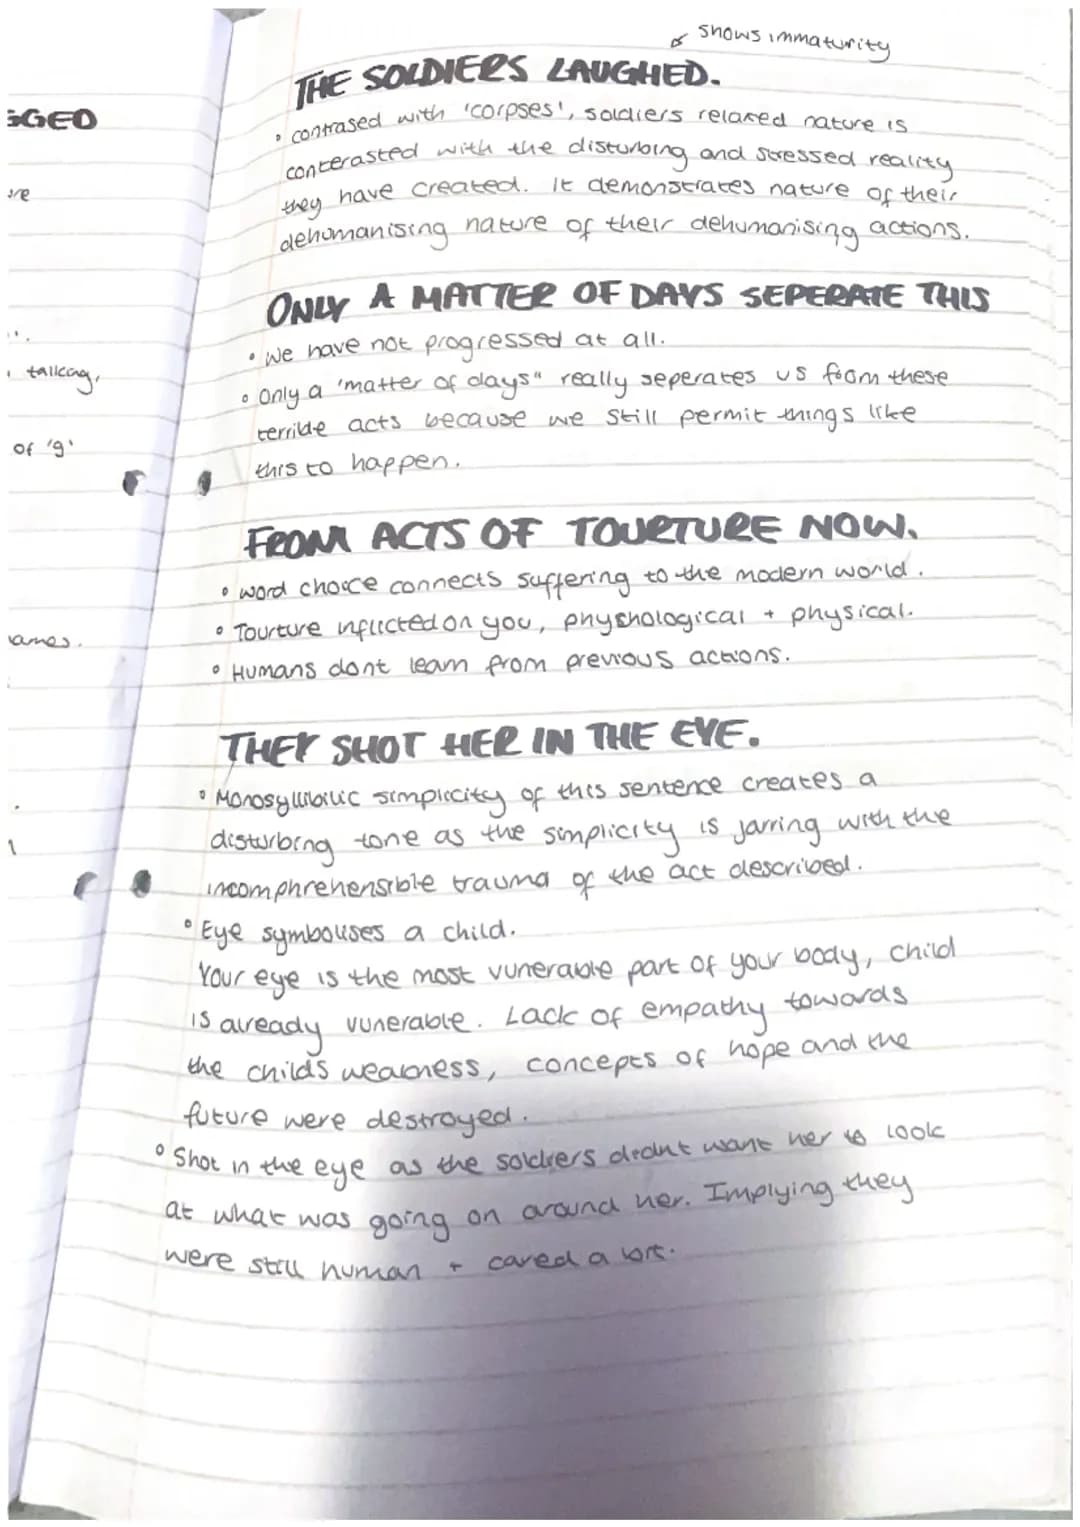 shows immaturity
THE SOLDIERS LAUGHED.
• contrased with 'corpses', soldiers relaxed nature is
conterasted with the disturbing and stressed reality
they have created. It demonstrates nature of their
dehumanising nature of their dehumanising actions.
ONLY A MATTER OF DAYS SEPERATE THIS
• We have not progressed at all.
• Only a 'matter of days" really seperates us from these
terrible acts because we still permit things like
this to happen.
FROM ACTS OF TOURTURE NOW.
• word choice connects suffering to the modern world.
• Tourture inflicted on you, physhological + physical.
• Humans dont learn from previous actions.
THEY SHOT HER IN THE EYE.
• Monosyllibilic simplicity of this sentence creates a
disturbing tone as the simplicity is jarring with the
incomphrehensible trauma of the act described.
• Eye symbolises a child.
Your eye is the most vunerable part of your body, child
is already vunerable. Lack of empathy towards
the childs weakness, concepts of hope and the
future were destroyed.
• Shot in the eye as the soldiers didnt want her to look
at what was going on around her. Implying they
were still human + cared a bit.
GGED
talking,
of 'g'